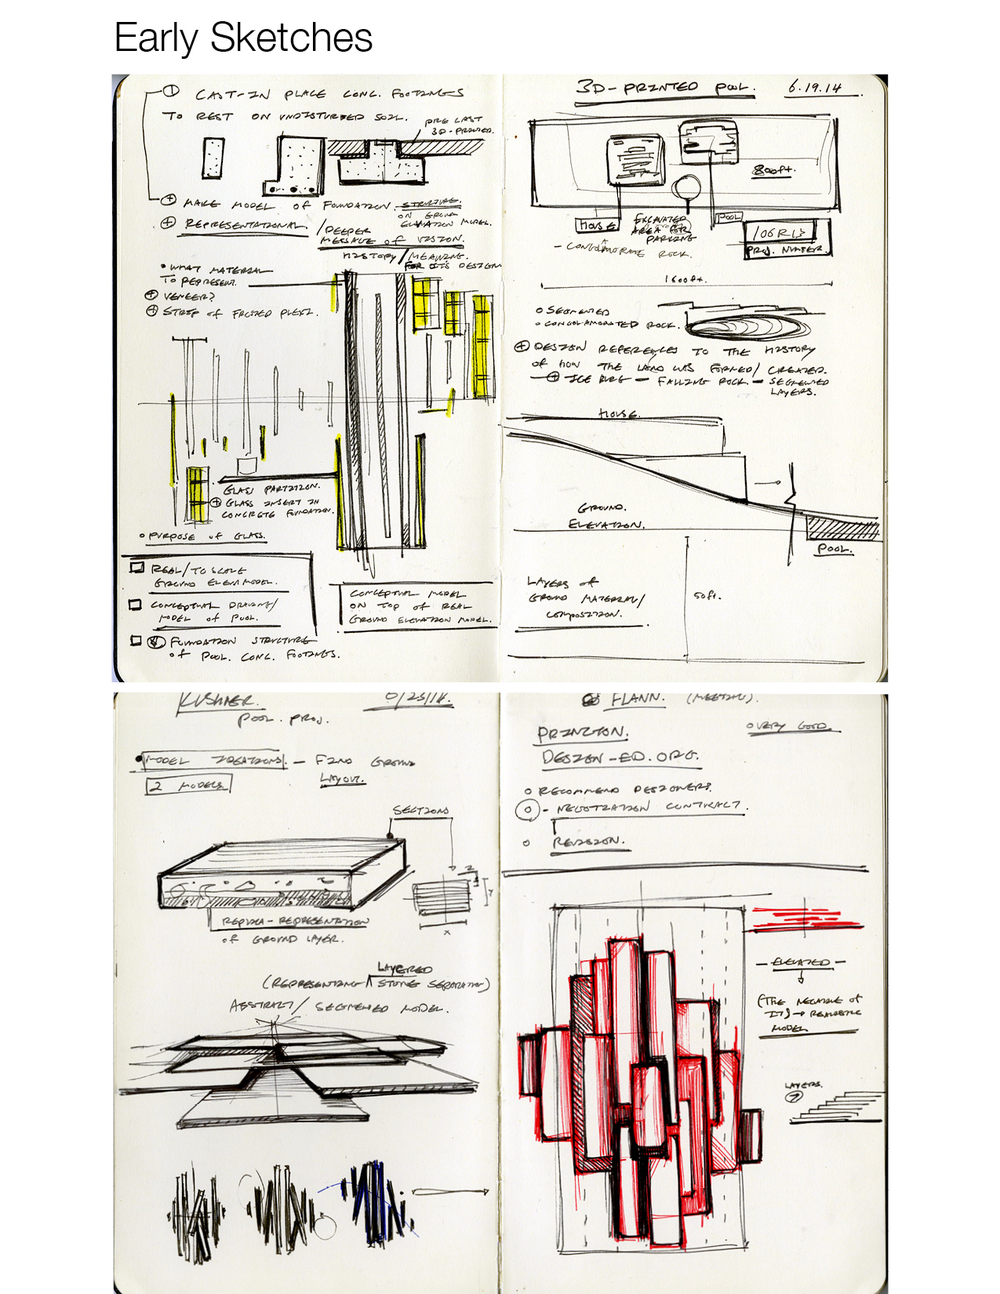 Early Sketches
① CAST-IN PLACE CONC. FOOTINGS
TO REST ON UNDISTURBED SOIL.
PRE CAST
3D-PRINTED.
MAKE MODEL OF FOUNDATION STRUCTURE
ON GROUND
ELEVATION MODEL.
REPRESENTATIONAL / DEEPER
MESSAGE OF VISION.
HISTORY / MEANING.
FOR ITS DESIGN
• WHAT MATERIAL
TO REPRESENT.
VENEER?
STRIP OF FROZED PLEXI.
GLASS PARTITION.
GLASS INSERT IN
CONCRETE FOUNDATION.
○ PURPOSE OF GLASS.
REAL/TO SCALE
GROUND ELEV. MODEL.
CONCEPTUAL DRAWING/
MODEL OF POOL.
FOUNDATION STRUCTURE
OF POOL. CONC. FOOTINGS.
CONCEPTUAL MODEL
ON TOP OF REAL
GROUND ELEVATION MODEL.
3D-PRINTED POOL. 6.19.14
800ft.
HOUSE
EXCAVATED
AREA FOR
PARKING
POOL
PROJ. NUMBER.
- CONGLAMORATE ROCK.
1600ft.
○ SEGMENTED
○ CONGLAMORATED ROCK.
DESIGN REFERENCES TO THE HISTORY
OF HOW THE LAND WAS FORMED/ CREATED.
ICE BURG - FALLING ROCK - SEGMENTED
LAYERS.
HOUSE.
GROUND.
ELEVATION.
POOL.
LAYERS OF
GROUND MATERIAL/
COMPOSITION.
50ft.
KUSHNER.
POOL. PROJ.
MODEL ITERATIONS - FIND GROUND
LAYOUT.
2 MODELS
SECTIONS
X
Y
Z
REPRESENTATION
OF GROUND LAYER.
LAYERED
(REPRESENTING STONE SEPARATION)
ABSTRACT/ SEGMENTED MODEL.
FLANN. (MEETING).
PRINCTON.
○ VERY GOOD.
DESIGN-ED.ORG.
○ RECOMMEND DESIGNERS?
- NEGOTIATION CONTRACT?
○ REVISION.
- ELEVATED -
(THE NEGATIVE OF
IT) → REALISTIC
MODEL
LAYERS.